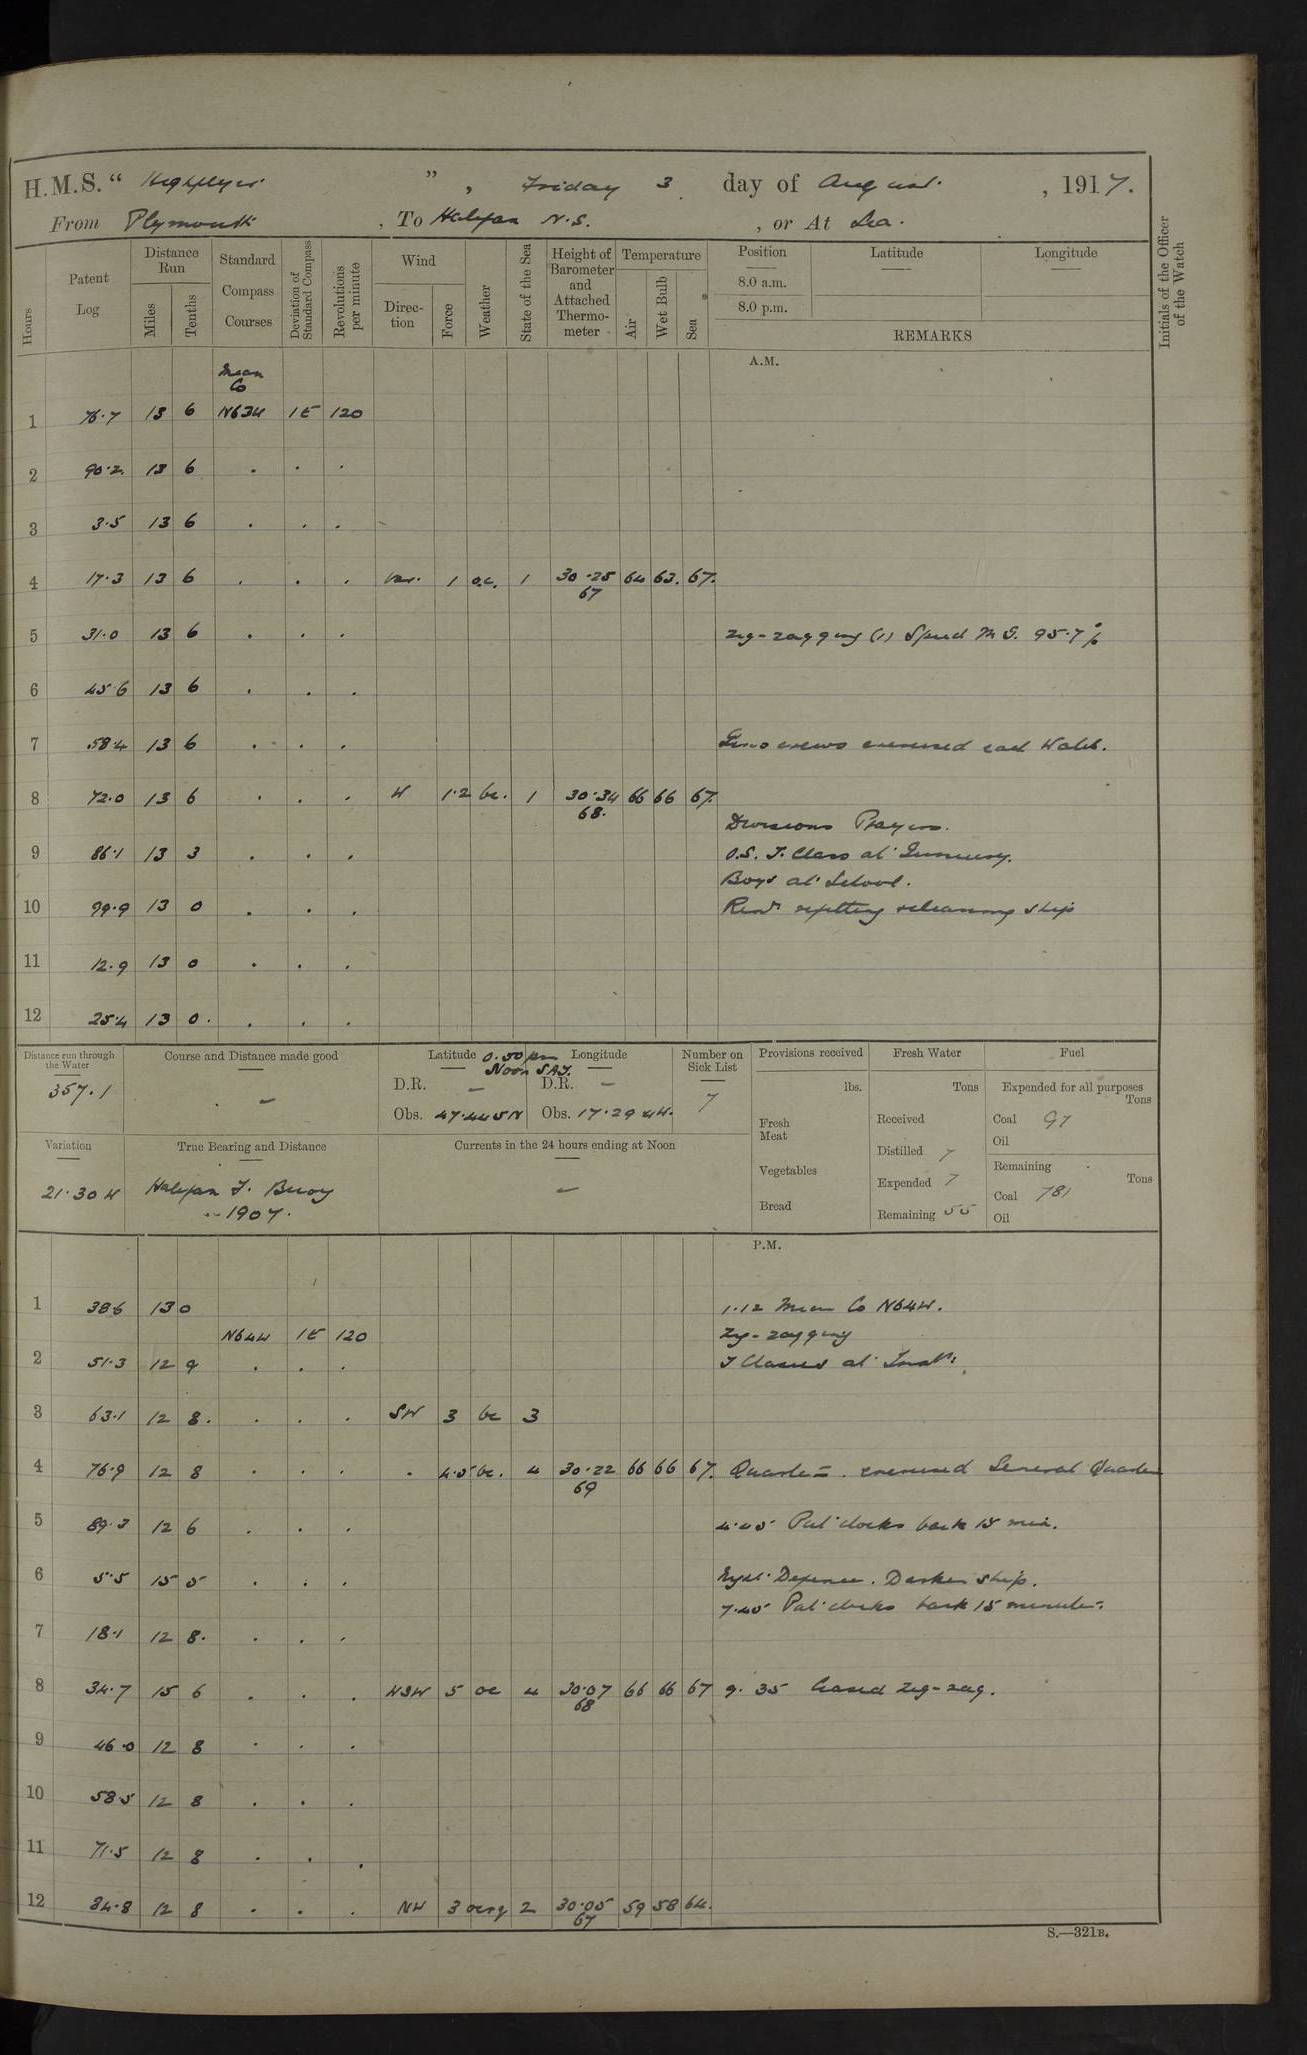 H.M.S. “ Highflyer ” , Friday 3 day of August , 1917.
From Plymouth , To Halifax N.S. , or At Sea.
Hours
Patent Log
Distance Run
Miles
Tenths
Standard Compass Courses
Deviation of Standard Compass
Revolutions per minute
Wind
Direction
Force
Weather
State of the Sea
Height of Barometer and Attached Thermometer
Temperature
Air
Wet Bulb
Sea
Position
8.0 a.m.
8.0 p.m.
Latitude
Longitude
REMARKS
Initials of the Officer of the Watch
A.M.
Mean Co
1 76.7 13 6 N63W 1E 120
2 90.2 13 6 . . .
3 3.5 13 6 . . .
4 17.3 13 6 . . . Var. 1 o.c. 1 30.25 64 63. 67.
67
5 31.0 13 6 . . . Zig-zagging (1) Speed M.G. 95.7 %
6 45.6 13 6 . . .
7 58.4 13 6 . . . Guns crews exercised each Watch.
8 72.0 13 6 . . . W 1.2 bc. 1 30.34 66 66 67.
68.
Divisions Prayers.
9 86.1 13 3 . . . O.S. T. Class at Gunnery.
Boys at School.
10 99.9 13 0 . . . Remr refitting & cleaning ship
11 12.9 13 0 . . .
12 25.4 13 0. . . .
Distance run through the Water
357.1
Course and Distance made good
–
Latitude 0.50 pm Longitude
Noon SAT.
D.R. – D.R. –
Obs. 47.44.5N Obs. 17.29.4W.
Number on Sick List
7
Provisions received
lbs.
Fresh Meat
Vegetables
Bread
Fresh Water
Tons
Received
Distilled 7
Expended 7
Remaining 55
Fuel
Expended for all purposes
Tons
Coal 97
Oil
Remaining
Tons
Coal 781
Oil
Variation
21.30 W
True Bearing and Distance
Halifax F. Buoy
1907.
Currents in the 24 hours ending at Noon
–
P.M.
1 38.6 13 0 1.12 Mean Co N64W.
N64W 1E 120 Zig-zagging
2 51.3 12 9 . . . T Classes at Instn:
3 63.1 12 8. . . . SW 3 bc 3
4 76.9 12 8 . . . . 4.5 bc. 4 30.22 66 66 67. Quarters. exercised General Quarters
69
5 89.3 12 6 . . . 4.45 Put clocks back 15 min.
6 5.5 15 5 . . . Night Defence. Darken ship.
7.45 Put clocks back 15 minutes.
7 18.1 12 8. . . .
8 34.7 15 6 . . . WSW 5 oc 4 30.07 66 66 67 9.35 Ceased Zig-zag.
68
9 46.0 12 8 . . .
10 58.5 12 8 . . .
11 71.5 12 8 . . .
12 84.8 12 8 . . . NW 3 ocrq 2 30.05 59 58 64.
67
S.—321B.